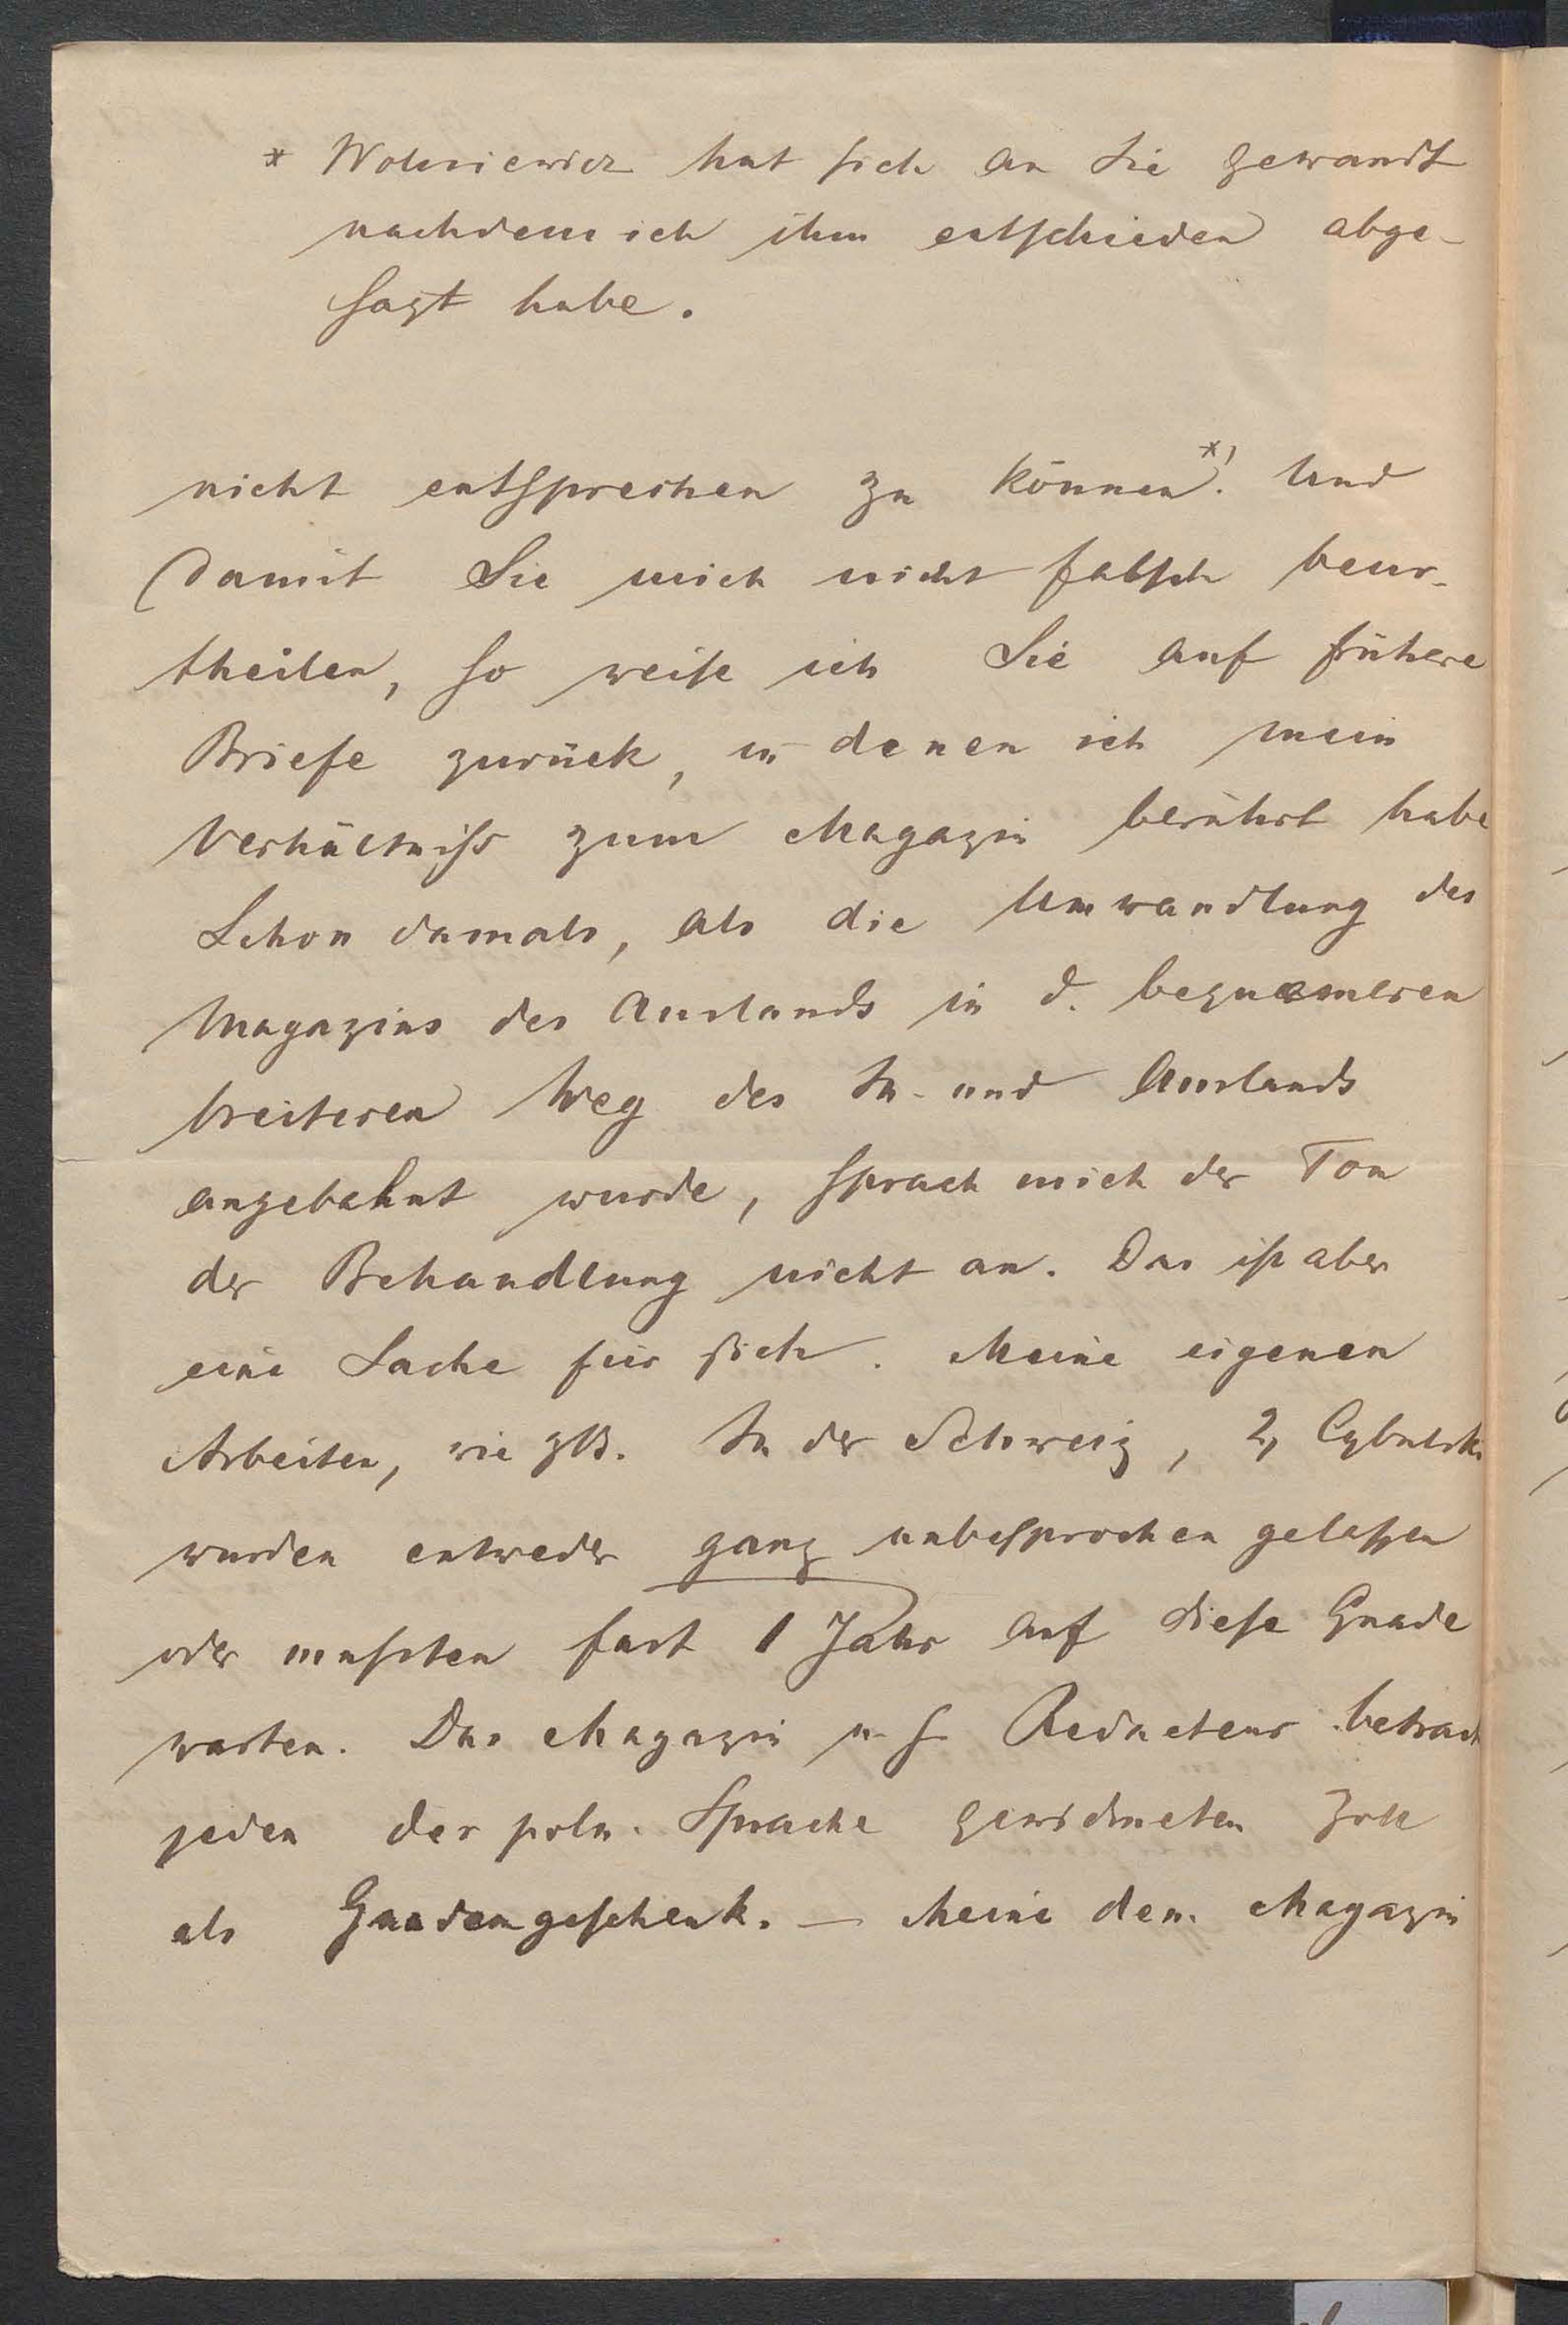 * Wolniewicz hat sich an Sie gewandt
nachdem ich ihm entschieden abge-
sagt habe.
nicht entsprechen zu können *). Und
damit Sie mich nicht falsch beur-
theilen, so weise ich Sie auf frühere
Briefe zurück, in denen ich mein
Verhältniss zum Magazin berührt habe
Schon damals, als die Umwandlung des
Magazins des Auslands in d. bequemeren
breiteren Weg des In- und Auslands
angebahnt wurde, sprach mich der Ton
der Behandlung nicht an. Das ist aber
eine Sache für sich. Meine eigenen
Arbeiten, wie zB. In der Schweiz, 2, Cybulski
wurden entweder ganz unbesprochen gelassen
oder mussten fast 1 Jahr auf diese Gnade
warten. Das Magazin u. s. Redacteur betracht
jeden der poln. Sprache gewidmeten Zoll
als Gnadengeschenk. — Meine dem Magazin